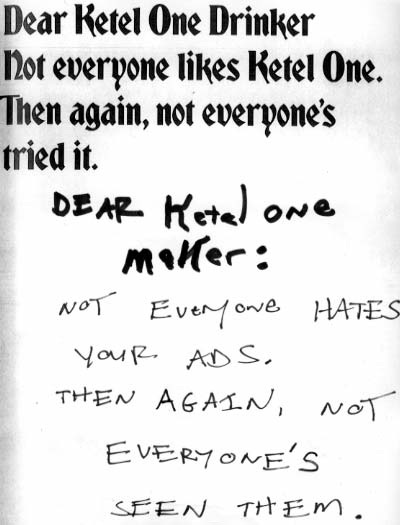 Dear Ketel One Drinker
Not everyone likes Ketel One.
Then again, not everyone's
tried it.
DEAR Ketel one
maker:
NOT EVERYONE HATES
YOUR ADS.
THEN AGAIN, NOT
EVERYONE'S
SEEN THEM.